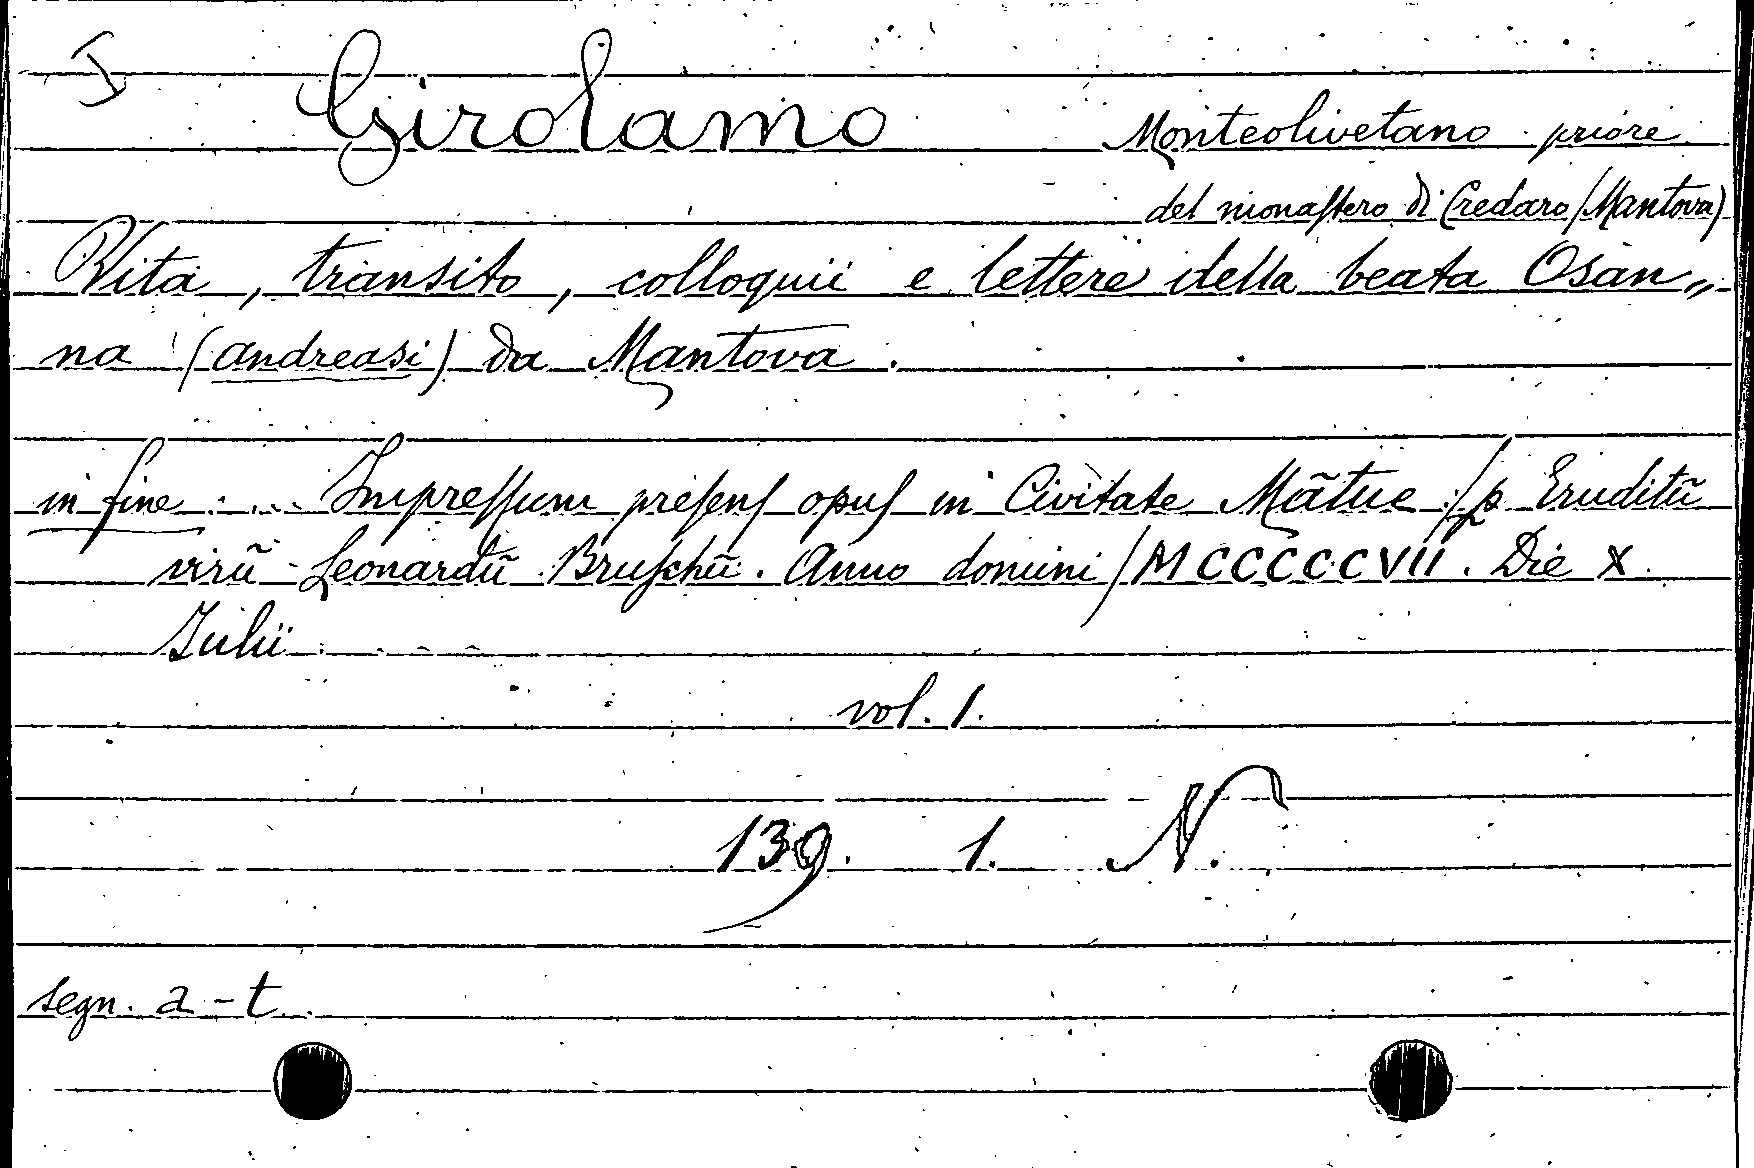 I Girolamo Monteolivetano priore
del monaſtero di Credaro (Mantova)
Vita, transito, colloquii e lettere della beata Osan„
na (Andreasi) da Mantova.
in fine: ... Impreſſum preſenſ opuſ in Civitate Mãtue /p Eruditũ
virũ Leonardũ Bruſchũ. Anno domini / MCCCCCVII. Die X
Julii
vol. 1.
139. 1. N.
segn. a-t